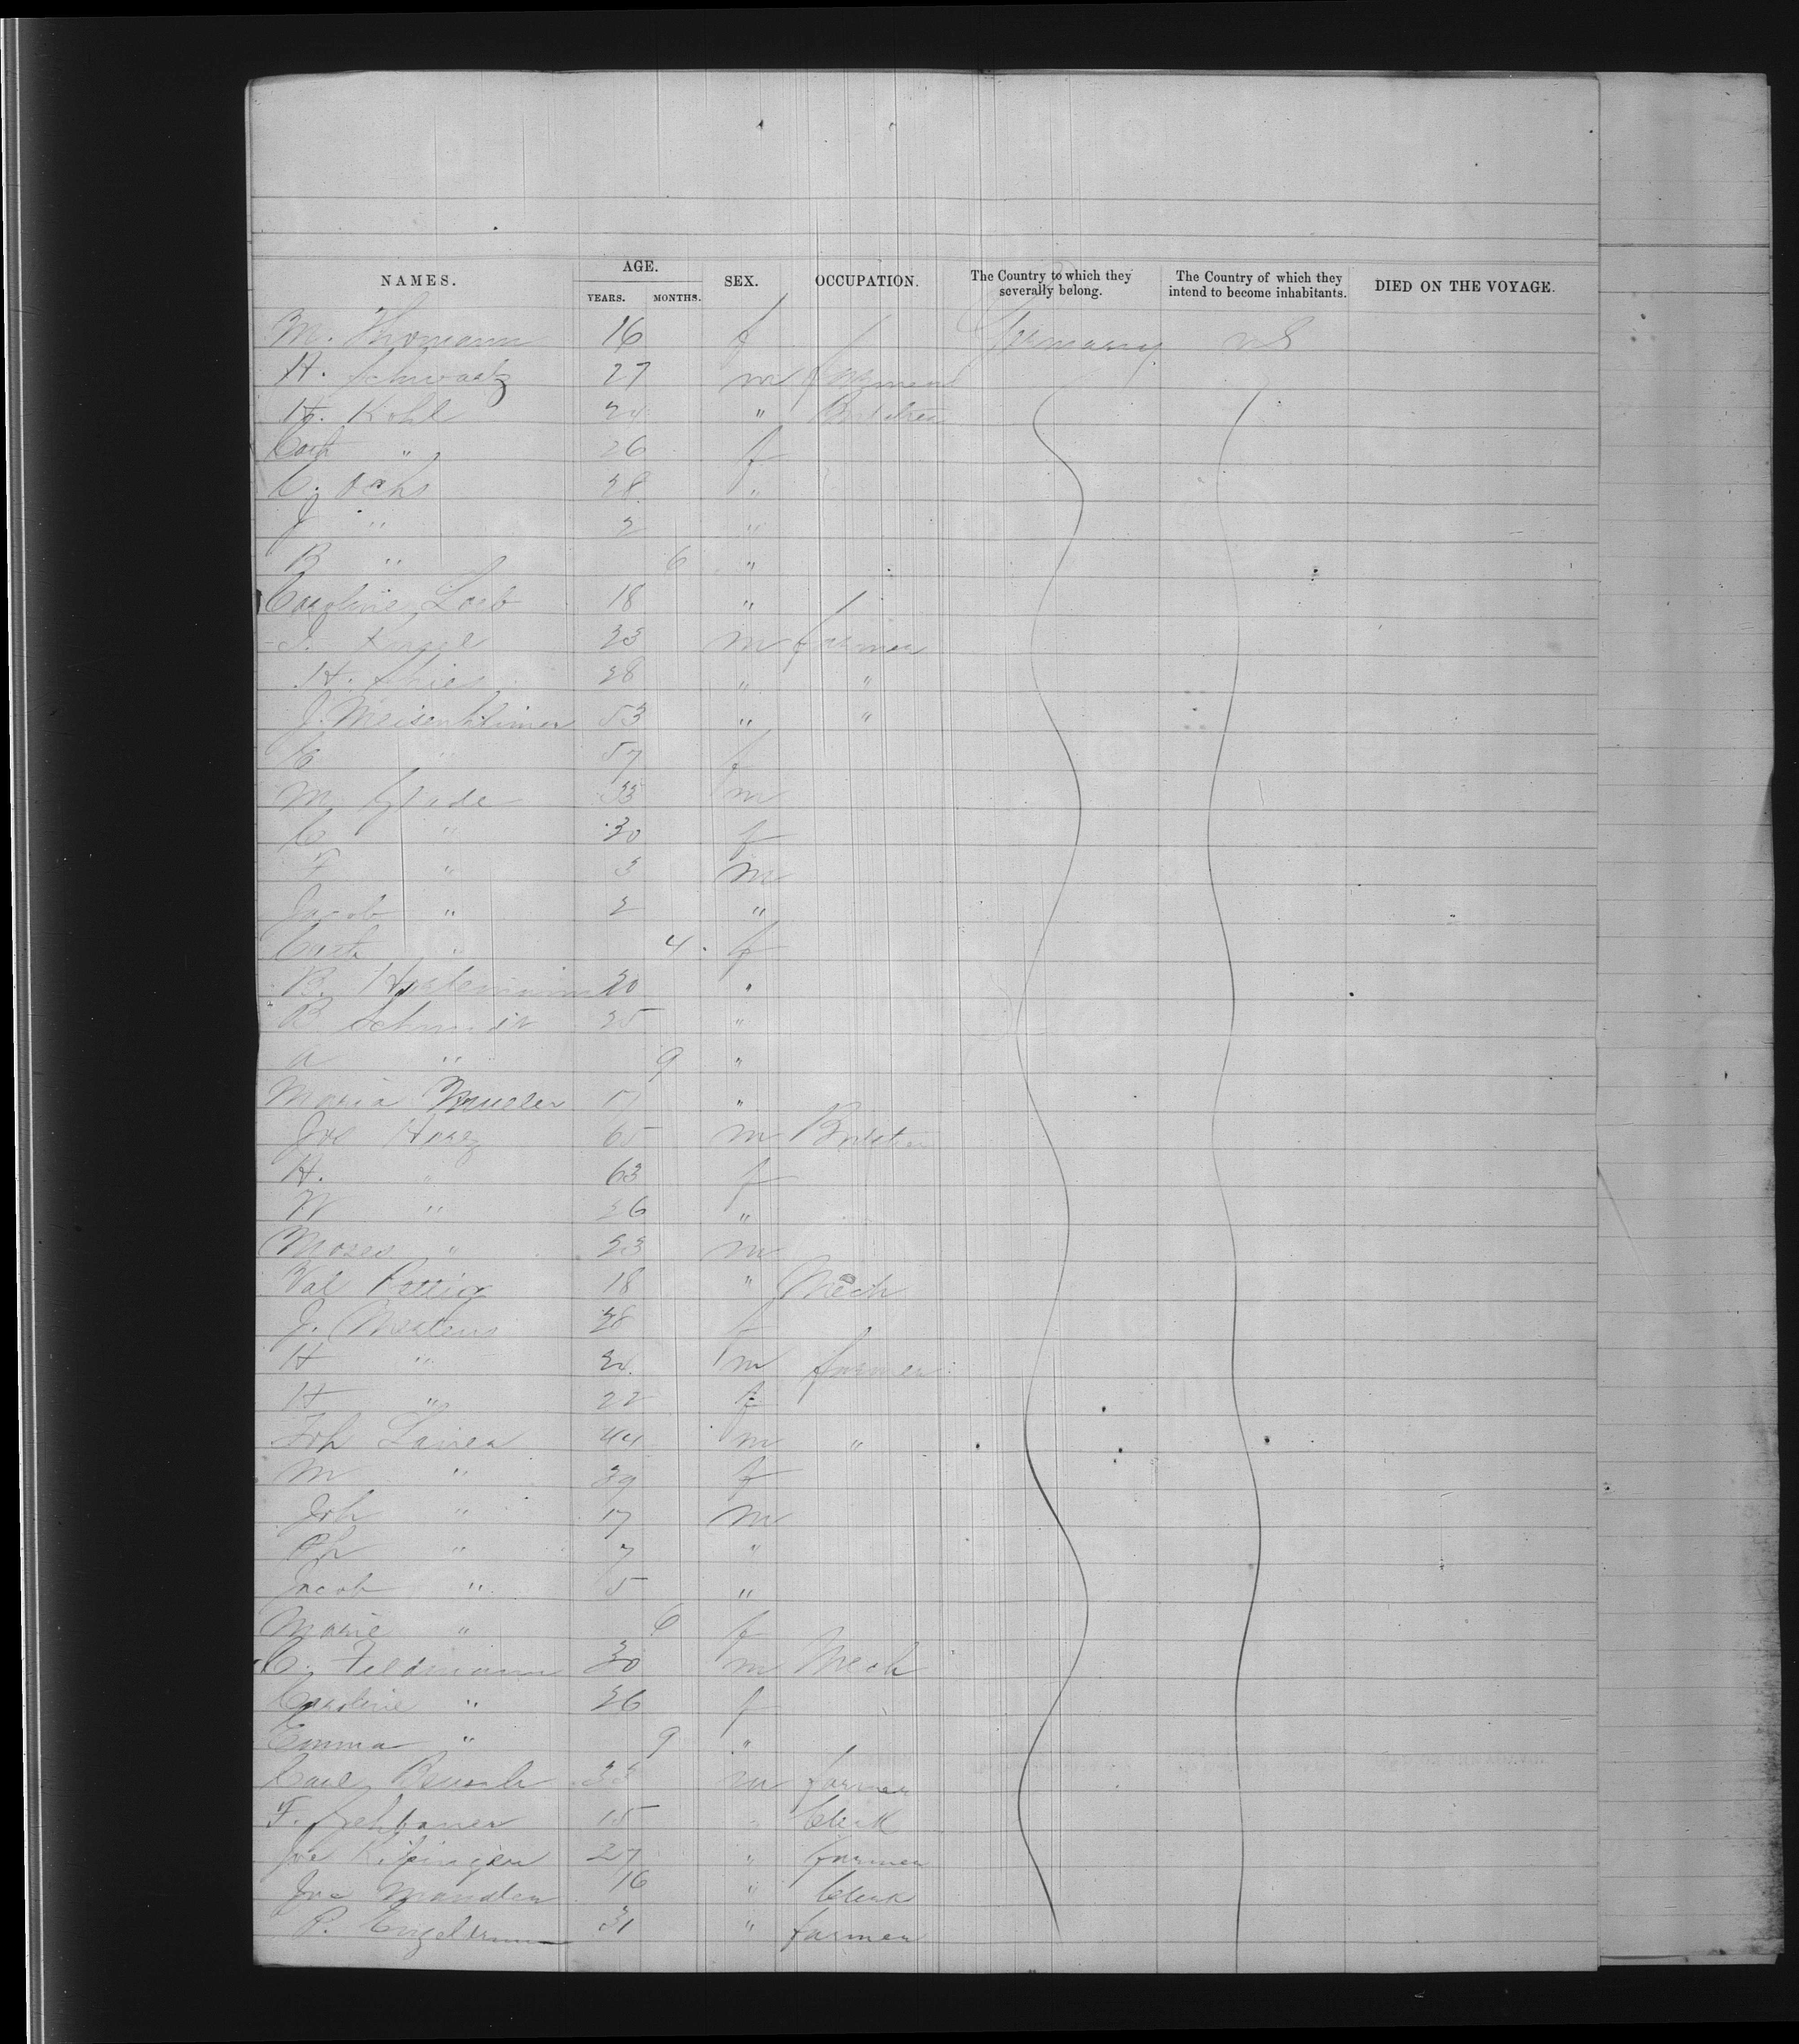 NAMES. AGE. SEX. OCCUPATION. The Country to which they severally belong. The Country of which they intend to become inhabitants. DIED ON THE VOYAGE.
YEARS. MONTHS.
M. Thomann 16 f / Germany US
H. Schwartz 27 m
H. Kohl 24 " Butcher
Cath " 26 f
C. Ochs 28 "
J " 2 "
B " 6 "
Caroline Loeb 18 "
23 m farmer
H. 28 " "
J. Meisenheimer 53 " "
" 57 f
M. 33 m
C " 30 f
F " 3 m
Jacob " 2 "
Cath " 4 f
B. 20 "
B Schmidt 25 "
a " 9 "
Maria Mueller 17 "
Joe Herz 65 m Butcher
H. " 63 f
W " 26 "
Moses " 23 m
Val Rettig 18 " Mech
J. Mertens 28 f
H " 24 m farmer
H " 22 f
Joh 44 m "
M " 39 f
Joh " 17 m
Ph " 7 "
Jacob " 5 "
Marie " 6 f
C. Feldmann 30 m Mech
Caroline " 26 f
Emma " 9 "
Carl 33 m farmer
F. Gehbauer 15 " Clerk
Joe 27 " farmer
Joe Mandler 16 " Clerk
P. Engelmann 31 " farmer